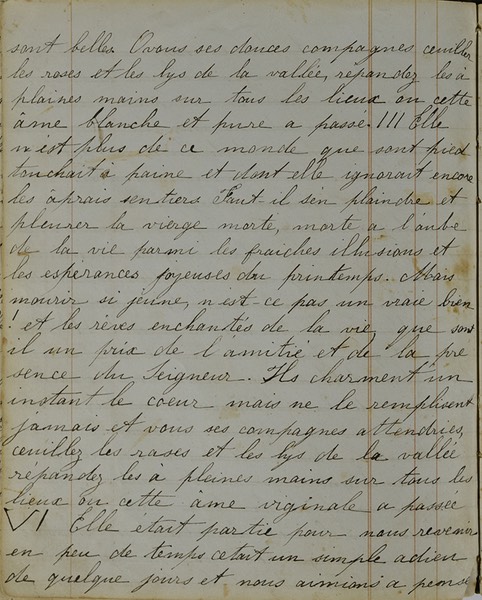 sont belles. O vous ses douces compagnes ceuillez
les roses et les lys de la vallée, répandez les à
plaines mains sur tous les lieux ou cette
âme blanche et pure a passé. !!! Elle
n'est plus de ce monde que sont pied
touchait à paine et dont elle ignorait encore
les âprais sentiers Faut-il s'en plaindre et
pleurer la vierge morte, morte a l'aube
de la vie parmi les fraiches illusions et
les espérances joyeuses du printemps. Mais
mourir si jeune, n'est-ce pas un vraie bien
! et les rêves enchantés de la vie, que sont
il un prix de l'amitié et de la pre
sence du Seigneur. Ils charment un
instant le coeur mais ne le remplisent
jamais et vous ses compagnes attendries,
ceuillez les rases et les lys de la vallée
répandez les à pleines mains sur tous les
lieux ou cette âme virginale a passée
VI Elle etait partie pour nous revenir
en peu de temps cetait un simple adieu
de quelque jours et nous aimions a pensé